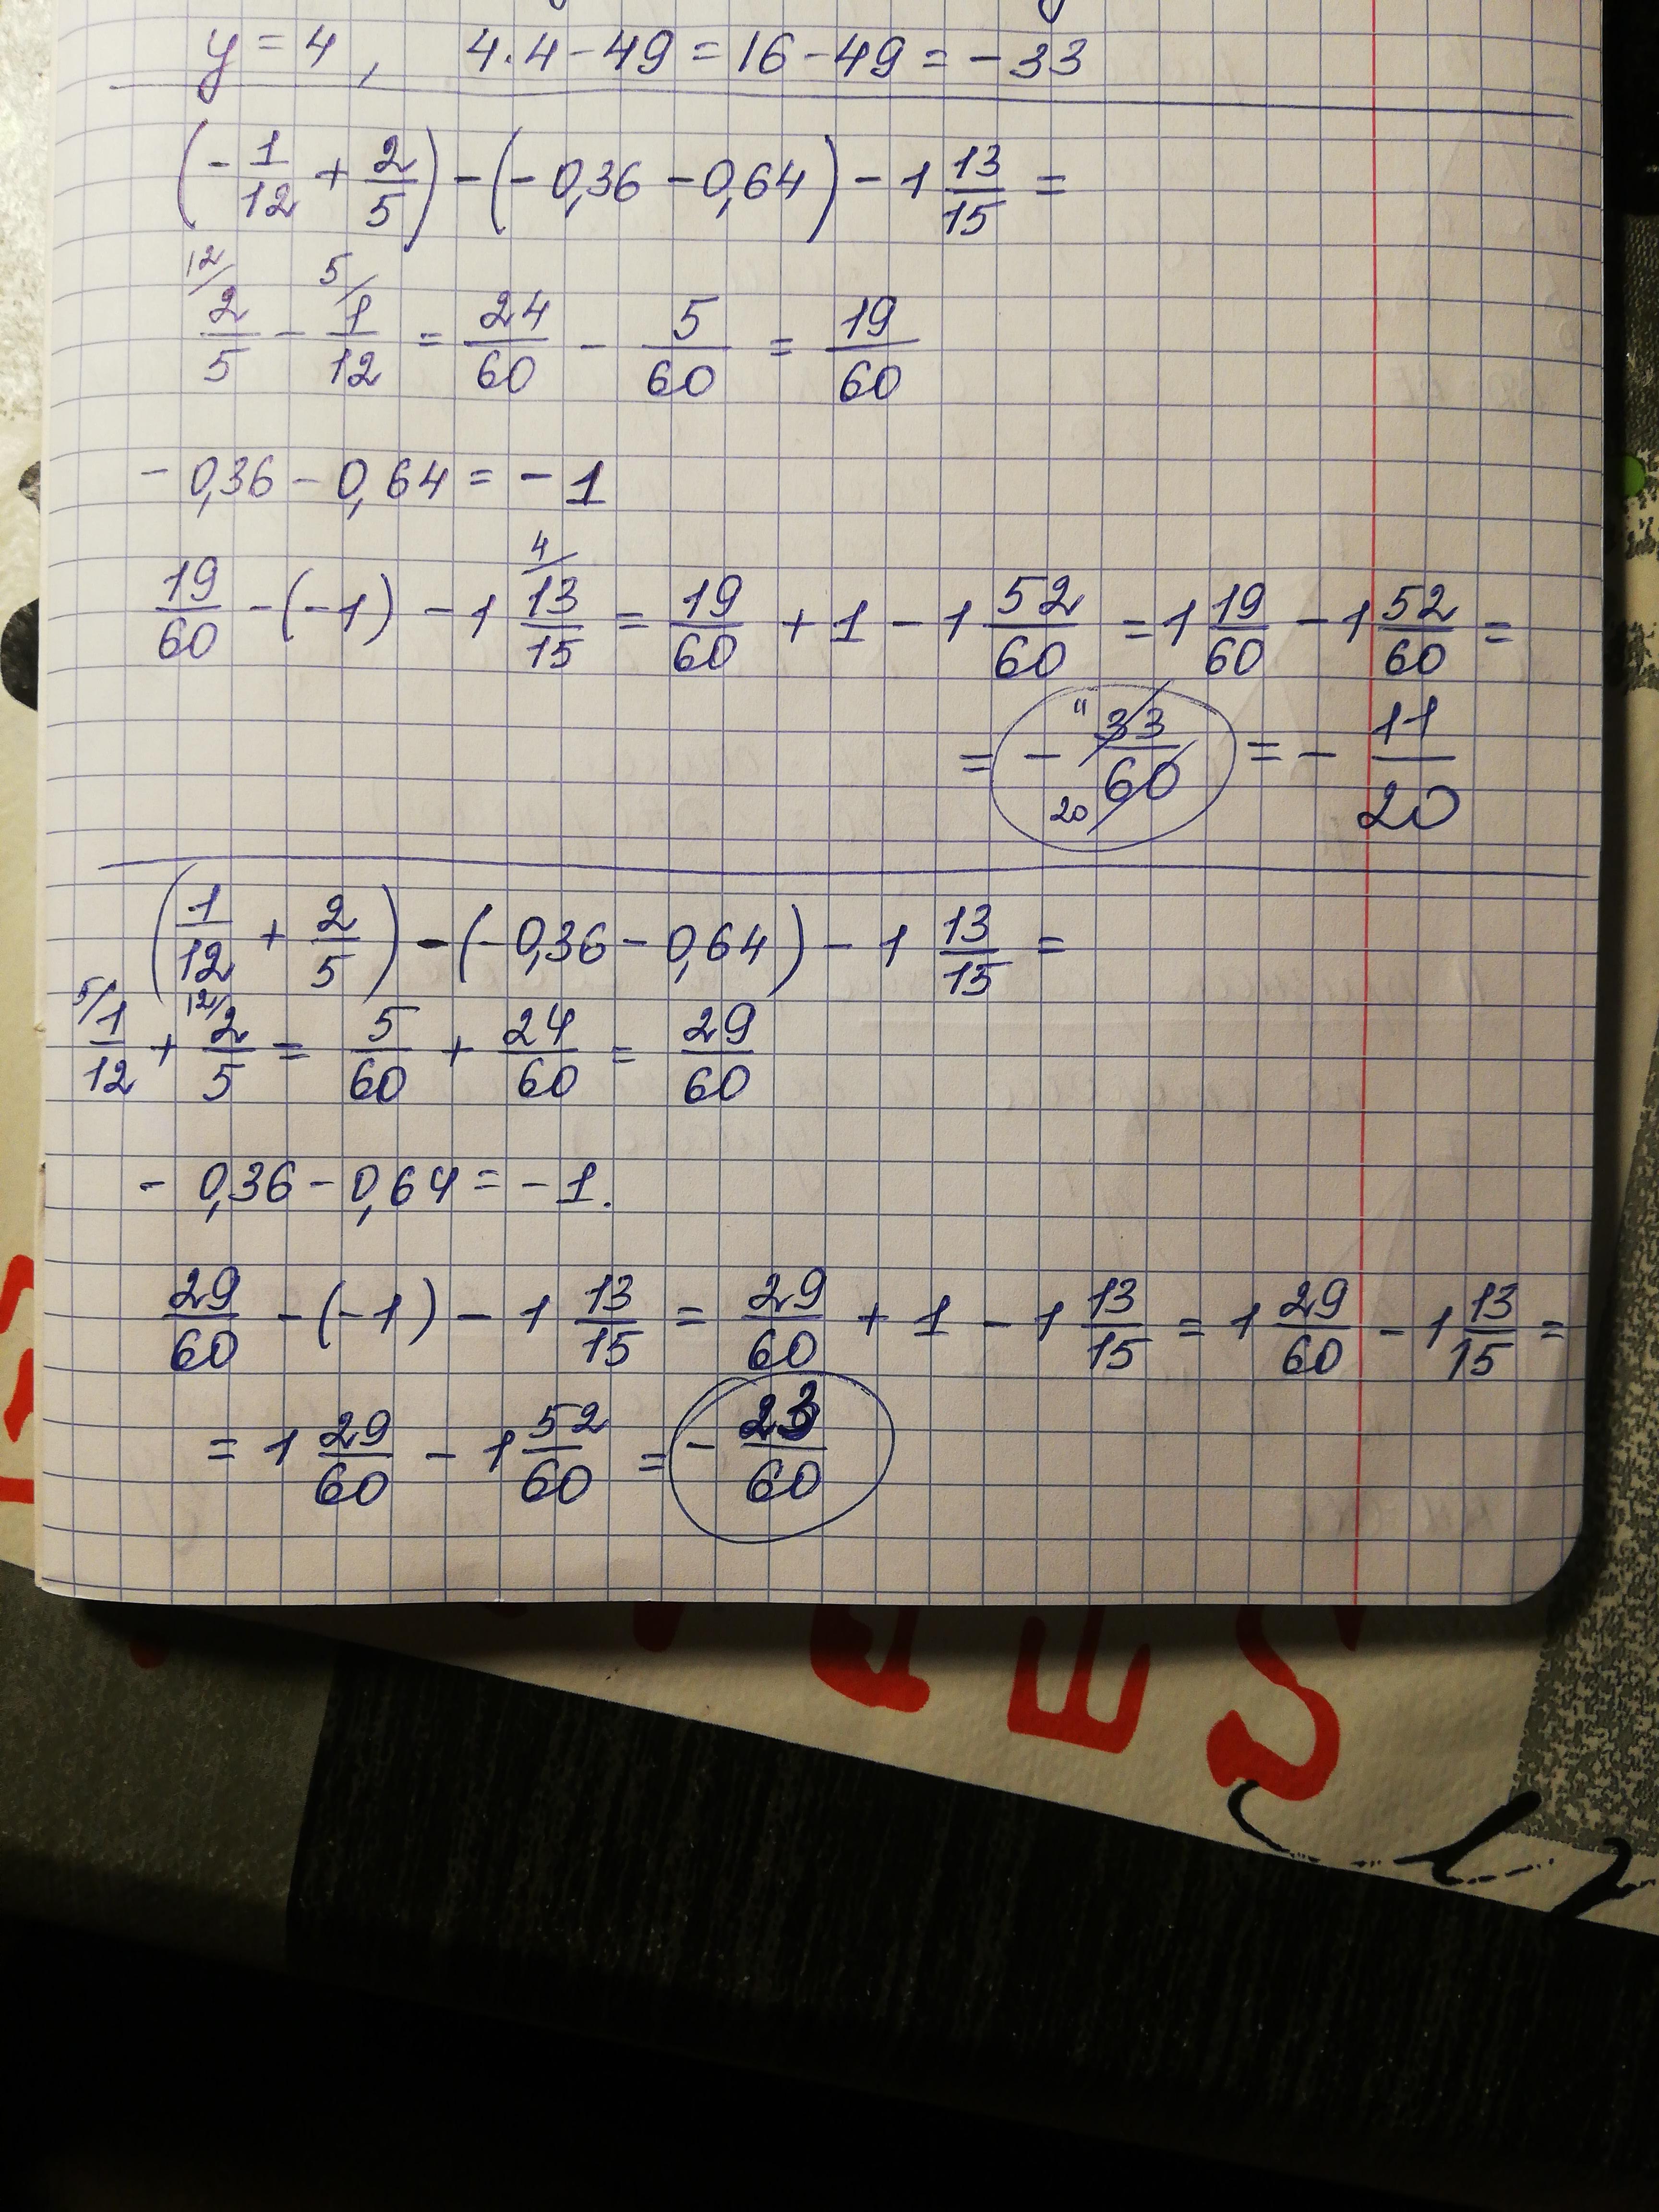 y = 4, 4·4-49 = 16-49 = -33
(-1/12 + 2/5) - (-0,36 - 0,64) - 1 13/15 =
12/ 5/
2/5 - 1/12 = 24/60 - 5/60 = 19/60
- 0,36 - 0,64 = - 1
4/
19/60 - (-1) - 1 13/15 = 19/60 + 1 - 1 52/60 = 1 19/60 - 1 52/60 =
= - 11 33/60 20 = - 11/20
(1/12 + 2/5) - (-0,36 - 0,64) - 1 13/15 =
5/ 12/
1/12 + 2/5 = 5/60 + 24/60 = 29/60
- 0,36 - 0,64 = - 1.
29/60 - (-1) - 1 13/15 = 29/60 + 1 - 1 13/15 = 1 29/60 - 1 13/15 =
= 1 29/60 - 1 52/60 = - 23/60